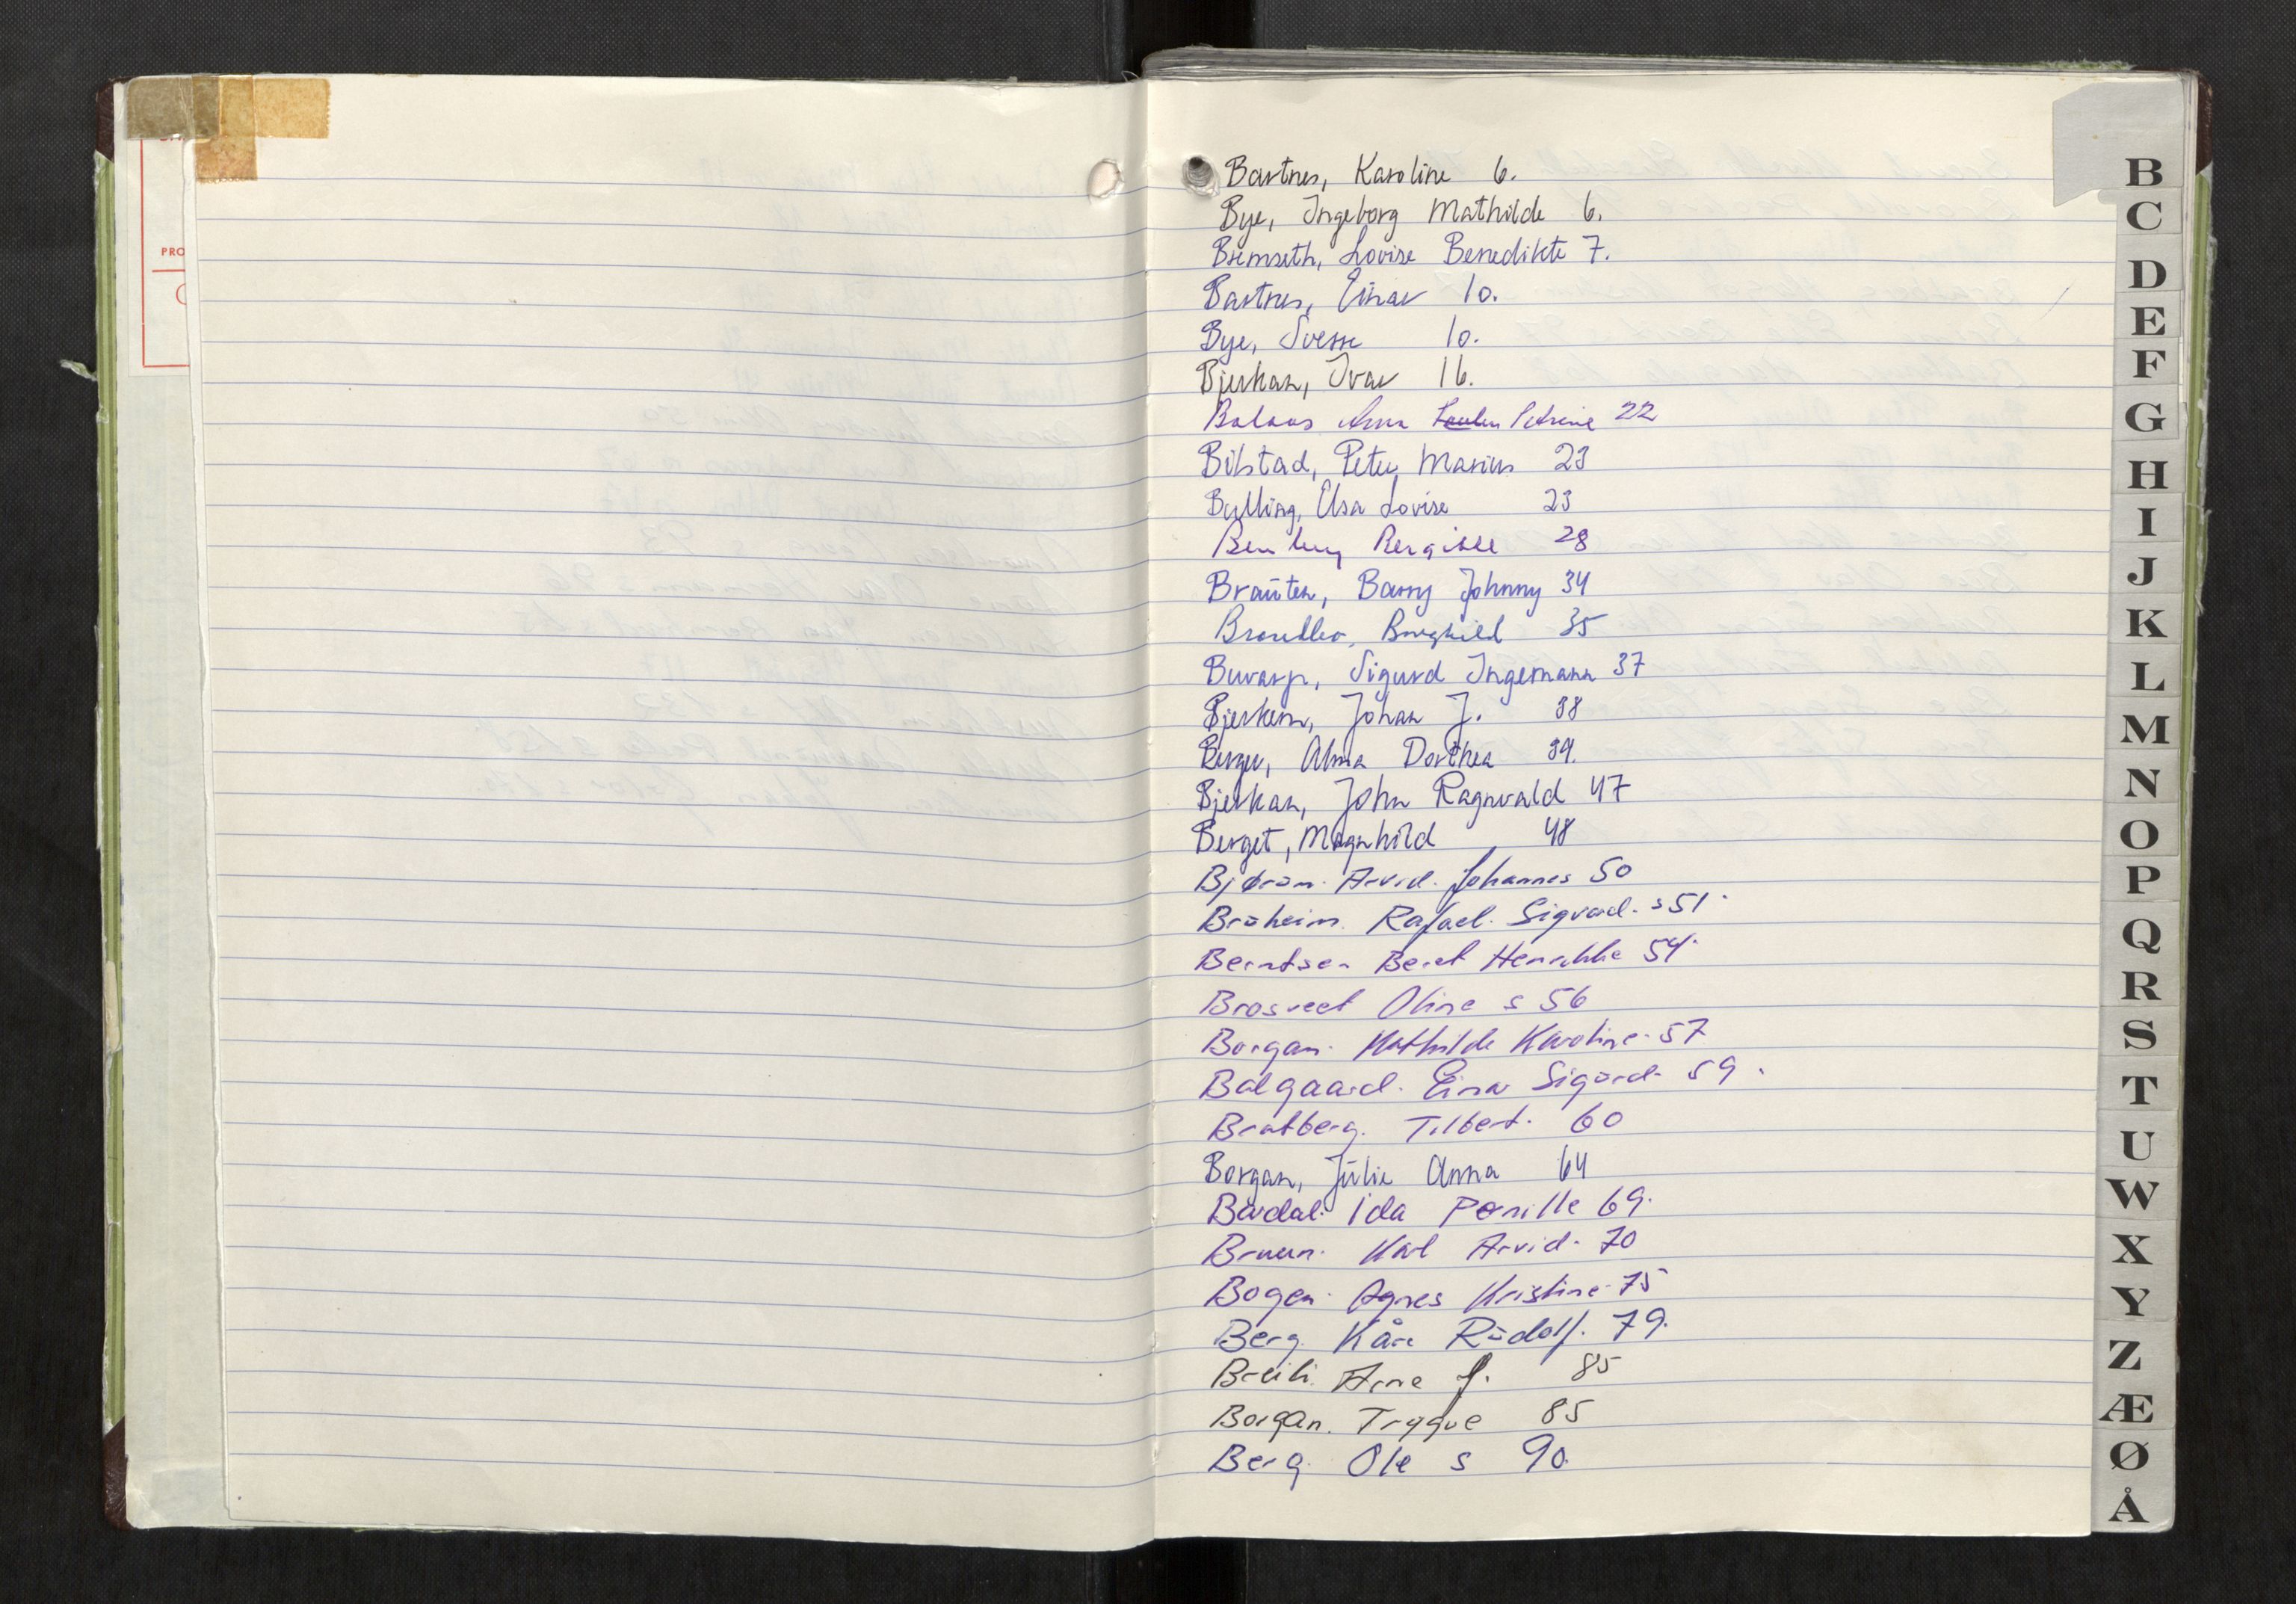 PRO
Bartnes, Karoline 6.
Bye, Ingeborg Mathilde 6.
Bremseth, Lovise Benedikte 7.
Bartnes, Einar 10.
Bye, Sverre 10.
Bjerkan, Ivar 16.
Balaas Anna Petrine 22
Bilstad, Peter Marius 23
Bulling, Elsa Lovise 23
Bergitte 28
Braüten, Barry Johnny 34
Borghild 35
Buvarp, Sigurd Ingemann 37
Bjerkem, Johan J. 38
Berger, Alma Dorthea 39.
Bjerkan, John Ragnvald 47
Berget, Magnhild 48
Bjøran. Arvid. Johannes 50
Braheim. Rafael. Sigvard. s 51.
Berntsen Beret Henrikke 54.
Brosveet Oline s 56
Borgan. Mathilde Karoline. 57
Balgaard. Einar Sigurd. 59.
Bratberg. Tilbert. 60
Borgan, Jülie Anna 64
Bardal. Ida Pernille 69.
Bruun. Karl Arvid. 70
Bogen. Agnes Kristine. 75
Berg. Kåre Rüdolf. 79.
Breili. Arne J. 85
Borgan. Trygve 85
Berg. Ole s 90.
B
C
D
E
F
G
H
I
J
K
L
M
N
O
P
Q
R
S
T
U
W
X
Y
Z
Æ
Ø
Å